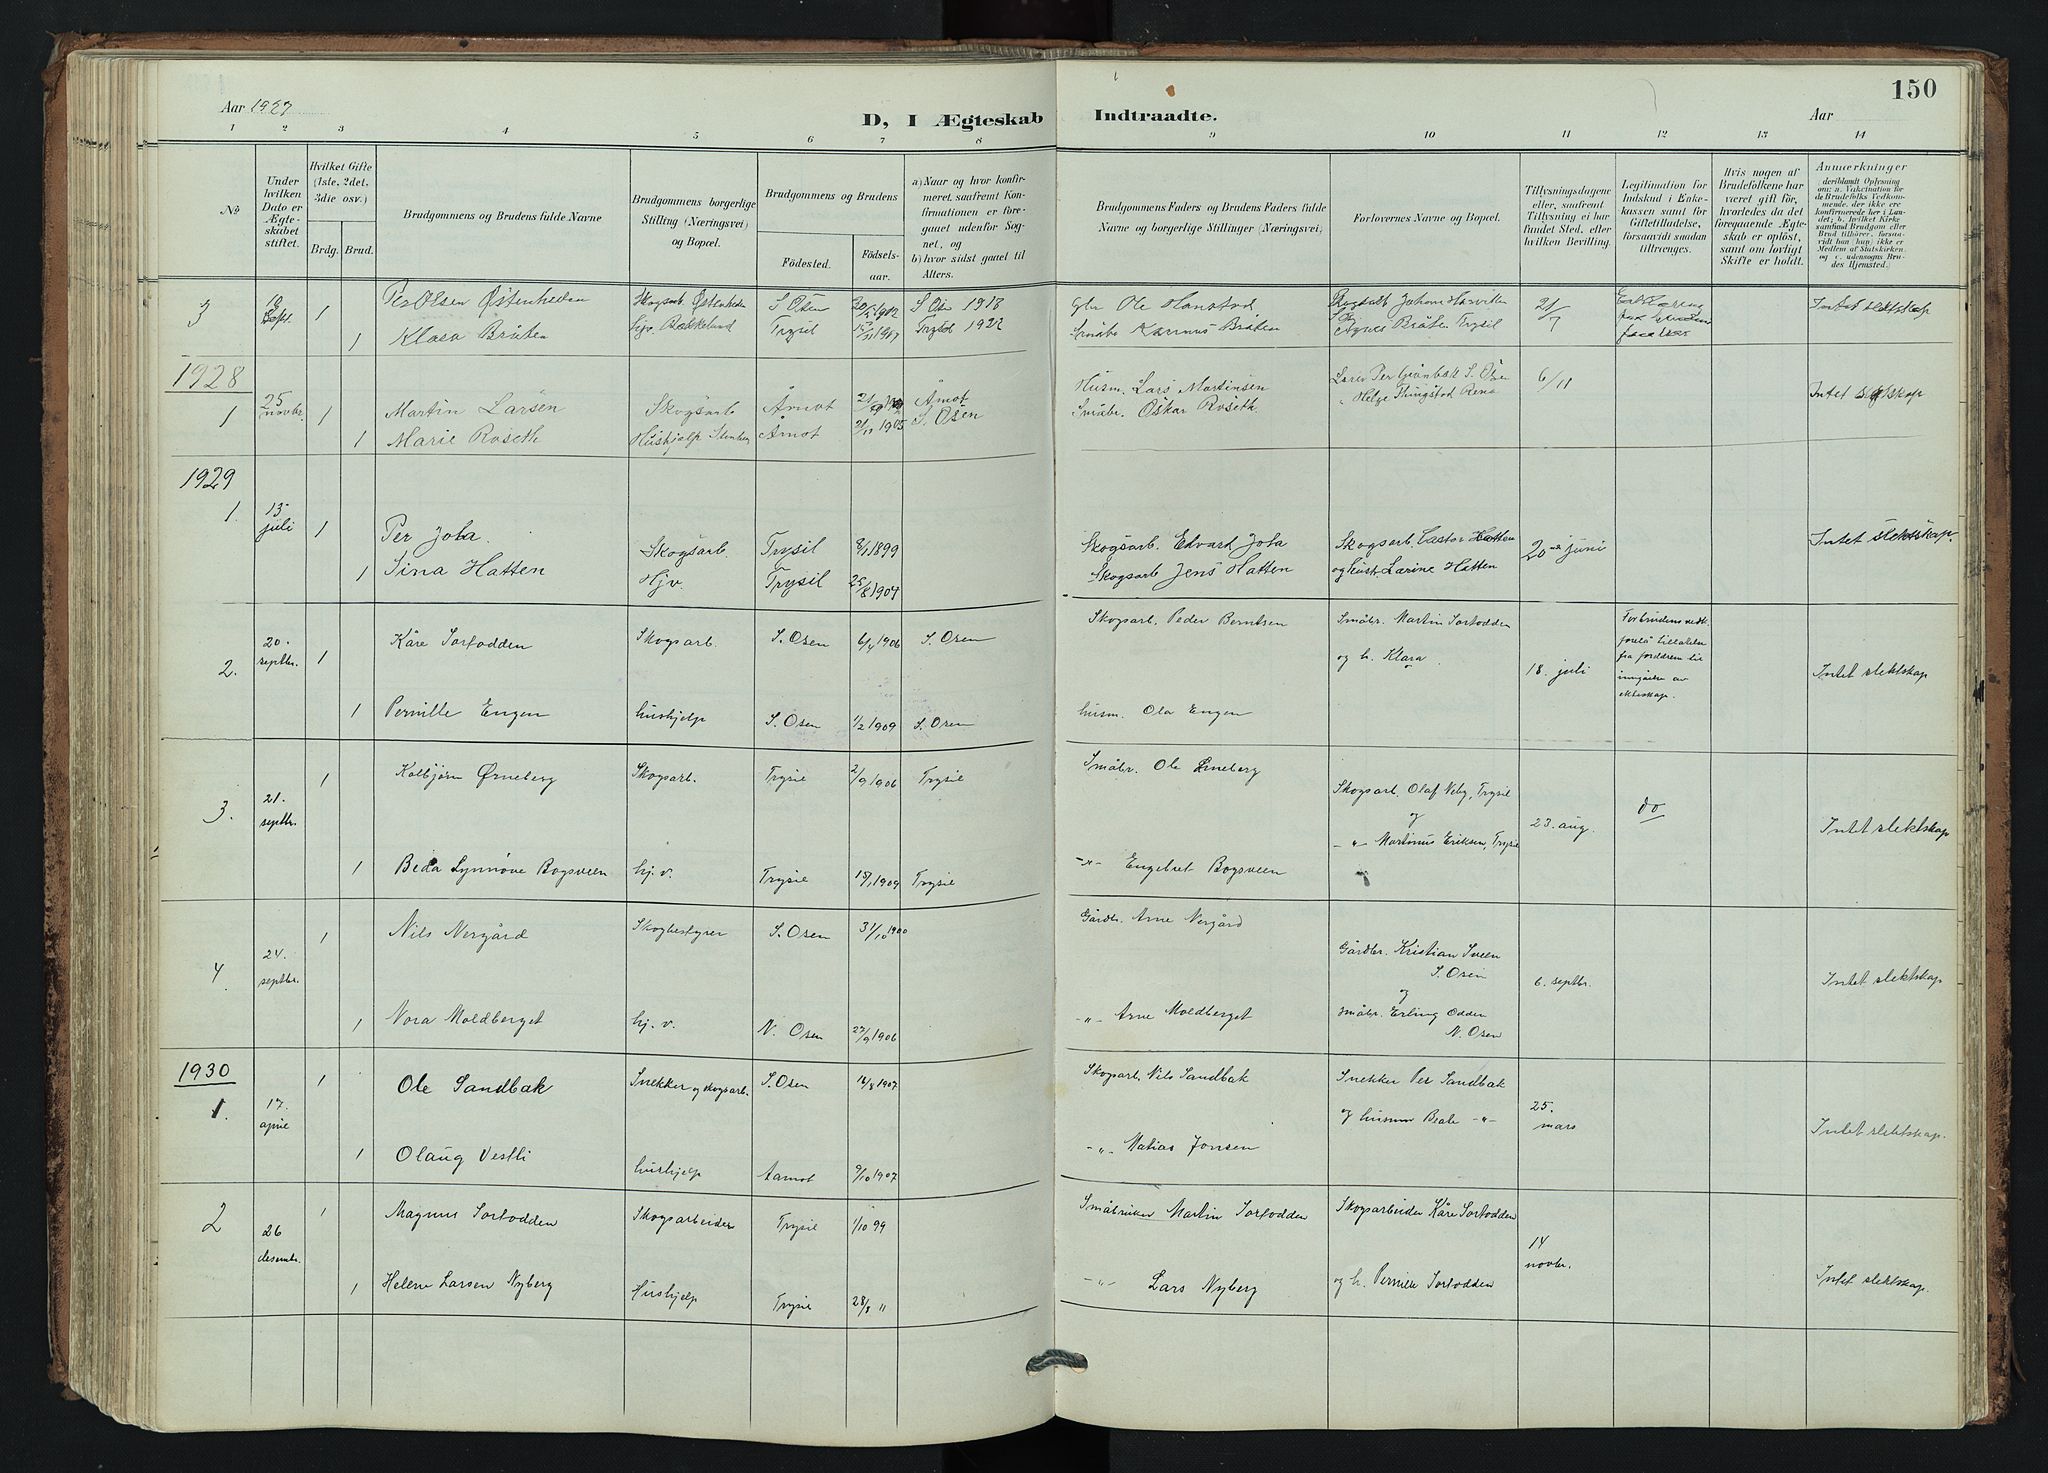 150
Aar 1927
D, I Ægteskab Indtraadte.
Aar
1 2 3 4 5 6 7 8 9 10 11 12 13 14
No
Under hvilken Dato er Ægteskabet stiftet.
Hvilket Gifte (1ste, 2det, 3die osv.)
Brdg. Brud.
Brudgommens og Brudens fulde Navne
Brudgommens borgerlige Stilling (Næringsvei) og Bopæl.
Brudgommens og Brudens
Fødested.
Fødselsaar.
a) Naar og hvor konfirmeret, saafremt Konfirmationen er foregaaet udenfor Sognet, og
b) hvor sidst gaaet til Alters.
Brudgommens Faders og Brudens Faders fulde Navne og borgerlige Stillinger (Næringsvei)
Forlovernes Navne og Bopæl.
Tillysningsdagene eller, saafremt Tillysning ei har fundet Sted, efter hvilken Bevilling.
Legitimation for Indskud i Enkekassen samt for Giftetilladelse, forsaavidt saadan tiltrænges.
Hvis nogen af Brudefolkene har været gift før, hvorledes da det foregaaende Ægteskab er opløst, samt om lovligt Skifte er holdt.
Anmerkninger
(deriblandt Oplysning om: a. Vakcination for de Brudefolks Vedkommende, der ikke ere konfirmerede her i Landet; b. hvilket Kirkesamfund Brudgom eller Brud tilhører, forsaavidt han (hun) ikke er Medlem af Statskirken, og c. udensogns Brudes Hjemsted.)
3 Sept. 1 Per Olsen Østenheden Skogsarb. Østenheden S. Osen 1902 S. Osen 1918 Ole Hanstad 21/7 Intet slektskap
1 Klara Bråten hjv. Bækkelund Trysil 1907 Trysil 1922 Småbr. Karinus Bråten Agnes Bråten Trysil
1928
1 25 novbr. 1 Martin Larsen Skogsarb Åmot Åmot Husm. Lars Martinsen S. Osen 6/11 Intet slektskap
1 Marie Roseth Hushjelp Åmot 1905 S. Osen Småbr. Oskar Roseth Helge Rena
1929
1. 13 juli 1 Per Jota. Skogsarb. Trysil 8/1 1899 Skogsarb. Edvard Jota Skogsarb. Castor Hatten 20de juni Intet slektskap.
1 Sina Hatten Hjv. Trysil 25/8 1904 Skogsarb Jens Hatten og hust. Lærine Hatten
2. 20. septbr. 1 Kåre Sortodden Skogsarb. S. Osen 6/4 1906 S. Osen Skogsarb. Peder Berntsen Småbr. Martin Sortodden og h. Klara 18. juli inngåelse av ekteskap. Intet slektskap
1 Pernille Engen hushjelp S. Osen 1/2 1909 S. Osen husm. Ola Engen
3. 21. septbr. 1 Kolbjørn Ørneberg Skogsarb. Trysil 2/9 1906 Trysil Småbr. Ole Skogsarb. Olaf Neby, Trysil 23. aug. do Intet slektskap
og
-"- Martinus Eriksen, Trysil
1 Beda Synnøve Bogsveen hj. v. Trysil 15/1 1909 Trysil -"- Engebret Bogsveen
4. 24. septbr. 1 Nils Nergård Skogbestyrer S. Osen 31/10 1900 Gårdbr. Arne Nergård Gårdbr. Kristian Sveen S. Osen 6. septbr. Intet slektskap
og
1 Nora Moldberget hj. v. N. Osen 27/9 1906 -"- Arne Moldberget småbr. Erling Odden N. Osen
1930
1. 17. april 1 Ole Sandbak Snekker og skogsarb. S. Osen 16/8 1907 Skogsarb. Nils Sandbak Snekker Per Sandbak 25. mars Intet slektskap.
og hustru Beate -"-
1 Olaug Vestli hushjelp Aamot 9/10 1907 -"- Matias Jonsen
2 26 desembr. 1 Magnus Sortodden Skogsarbeider Trysil 1/10 99 Småbruker Martin Sortodden Skogsarbeider Kåre Sortodden 14 novbr. Intet slektskap.
1 Helene Larsen Nyberg Hushjelp Trysil 28/8 " -"- Lars Nyberg og h. Pernille Sortodden